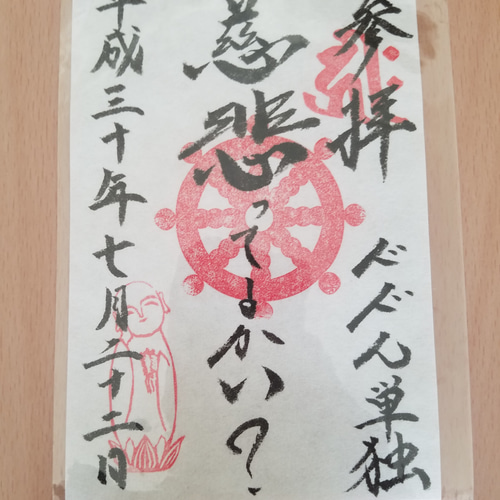 参拝 ドドん単独
慈悲ってよかい?
平成三十年七月二十二日